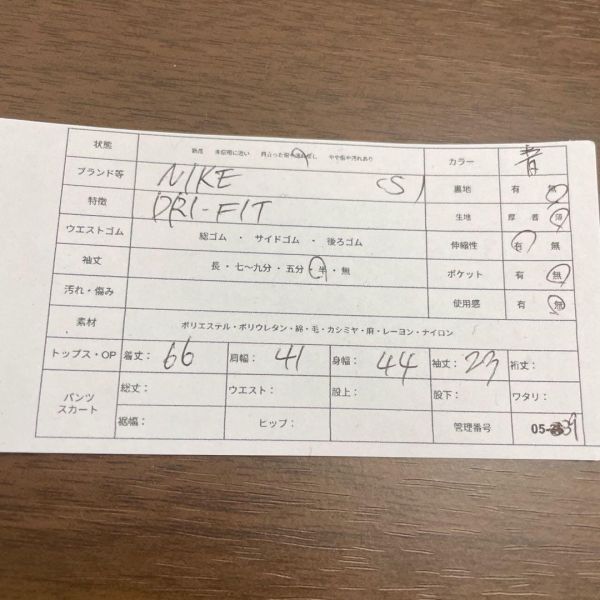 状態 新品 未使用に近い 目立った傷や汚れなし やや傷や汚れあり カラー 青
ブランド等 NIKE (S) 裏地 有 無
特徴 DRI-FIT 生地 厚 普 薄
ウエストゴム 総ゴム ・ サイドゴム ・ 後ろゴム 伸縮性 有 無
袖丈 長 ・ 七〜九分 ・ 五分 ・ 半 ・ 無 ポケット 有 無
汚れ・傷み 使用感 有 無
素材 ポリエステル・ポリウレタン・綿・毛・カシミヤ・麻・レーヨン・ナイロン
トップス・OP 着丈: 66 肩幅: 41 身幅: 44 袖丈: 23 裄丈:
パンツ スカート 総丈: ウエスト: 股上: 股下: ワタリ:
裾幅: ヒップ: 管理番号 05-39